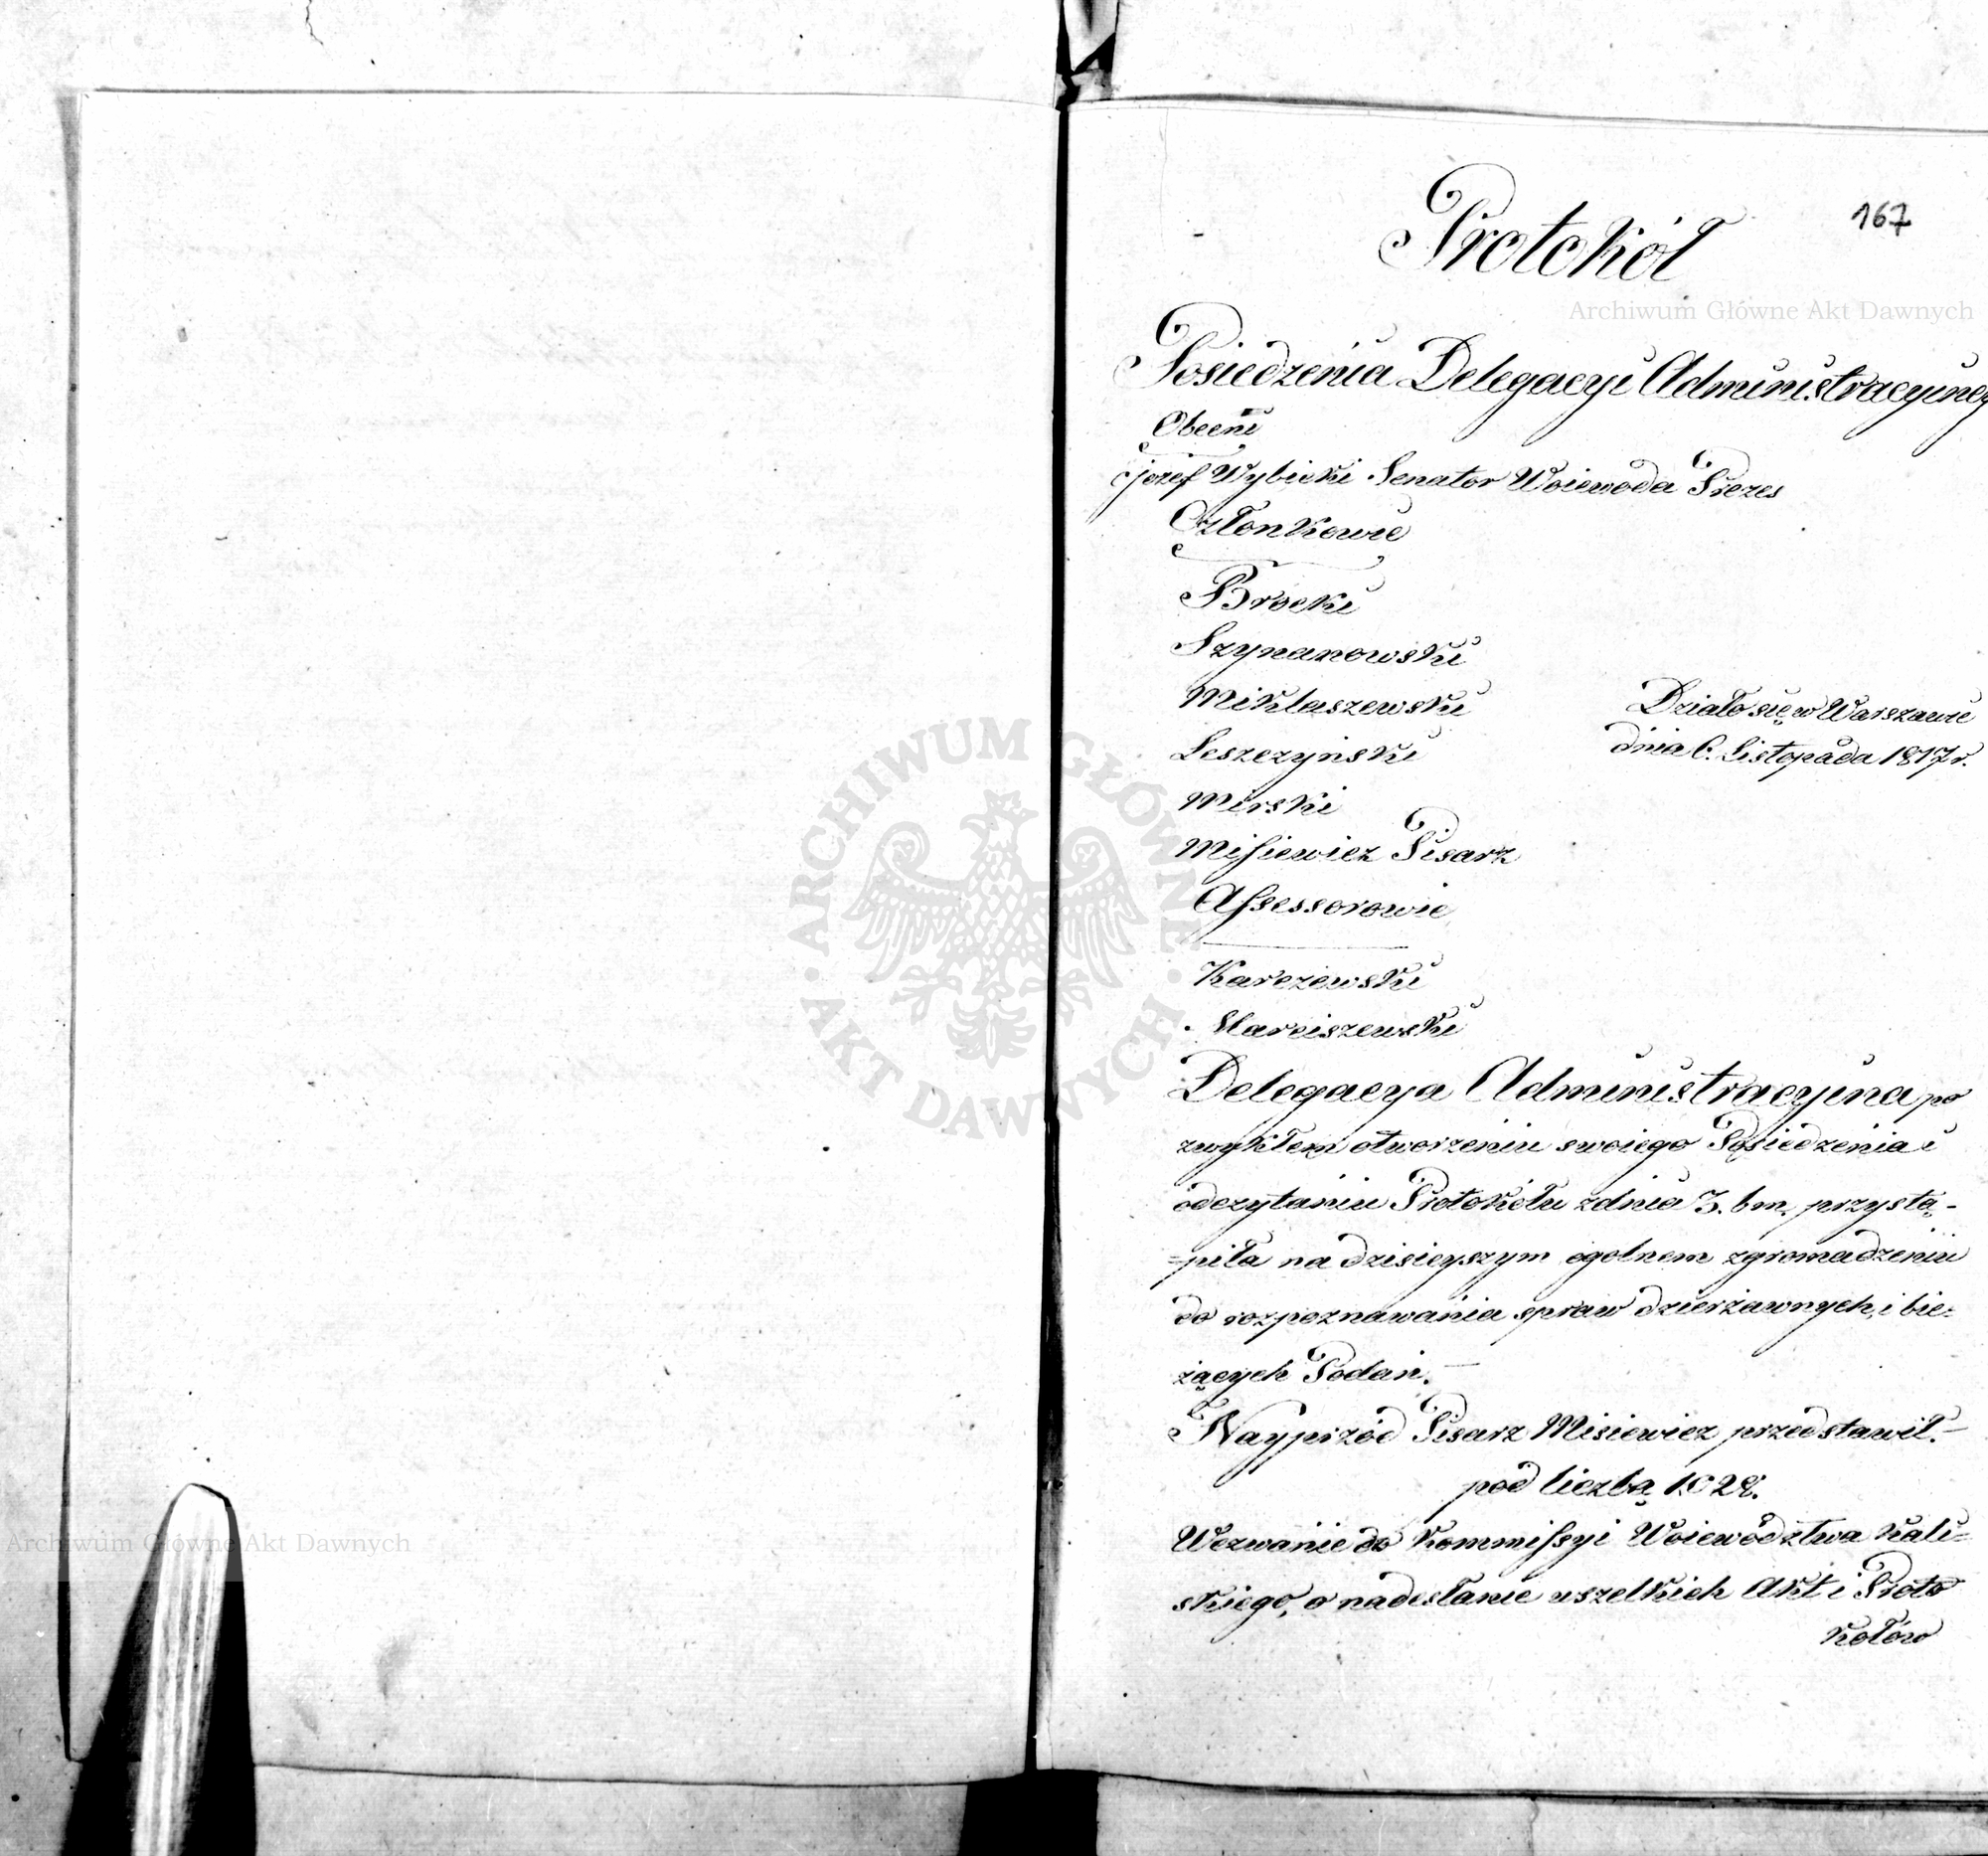 167
Protokół
Posiedzenia Delegacyi Administracyiney
Obecni
Jozef Wybicki Senator Woiewoda Prezes
Członkowie
Brocki
Szymanowski
Miklaszewski
Leszczyński
Działo się w Warszawie
dnia 6. Listopada 1817 r.
Mirski
Misiewicz Pisarz
Assessorowie
Karczewski
Marciszewski
Delegacya Administracyina po
zwykłem otworzeniu swoiego Posiedzenia i
odczytaniu Protokołu z dnia 3. b m. przystą-
=piła na dzisieyszym ogolnem zgromadzeniu
do rozpoznawania spraw dzierżawnych, i bie=
żących Podań.
Nayprzód Pisarz Misiewicz przedstawił.
pod liczbą 1028.
Wezwanie do Kommissyi Woiewództwa Kali=
skiego, o nadesłanie wszelkich Akt i Proto
kołów
Archiwum Główne Akt Dawnych
ARCHIWUM GŁÓWNE AKT DAWNYCH
Archiwum Główne Akt Dawnych